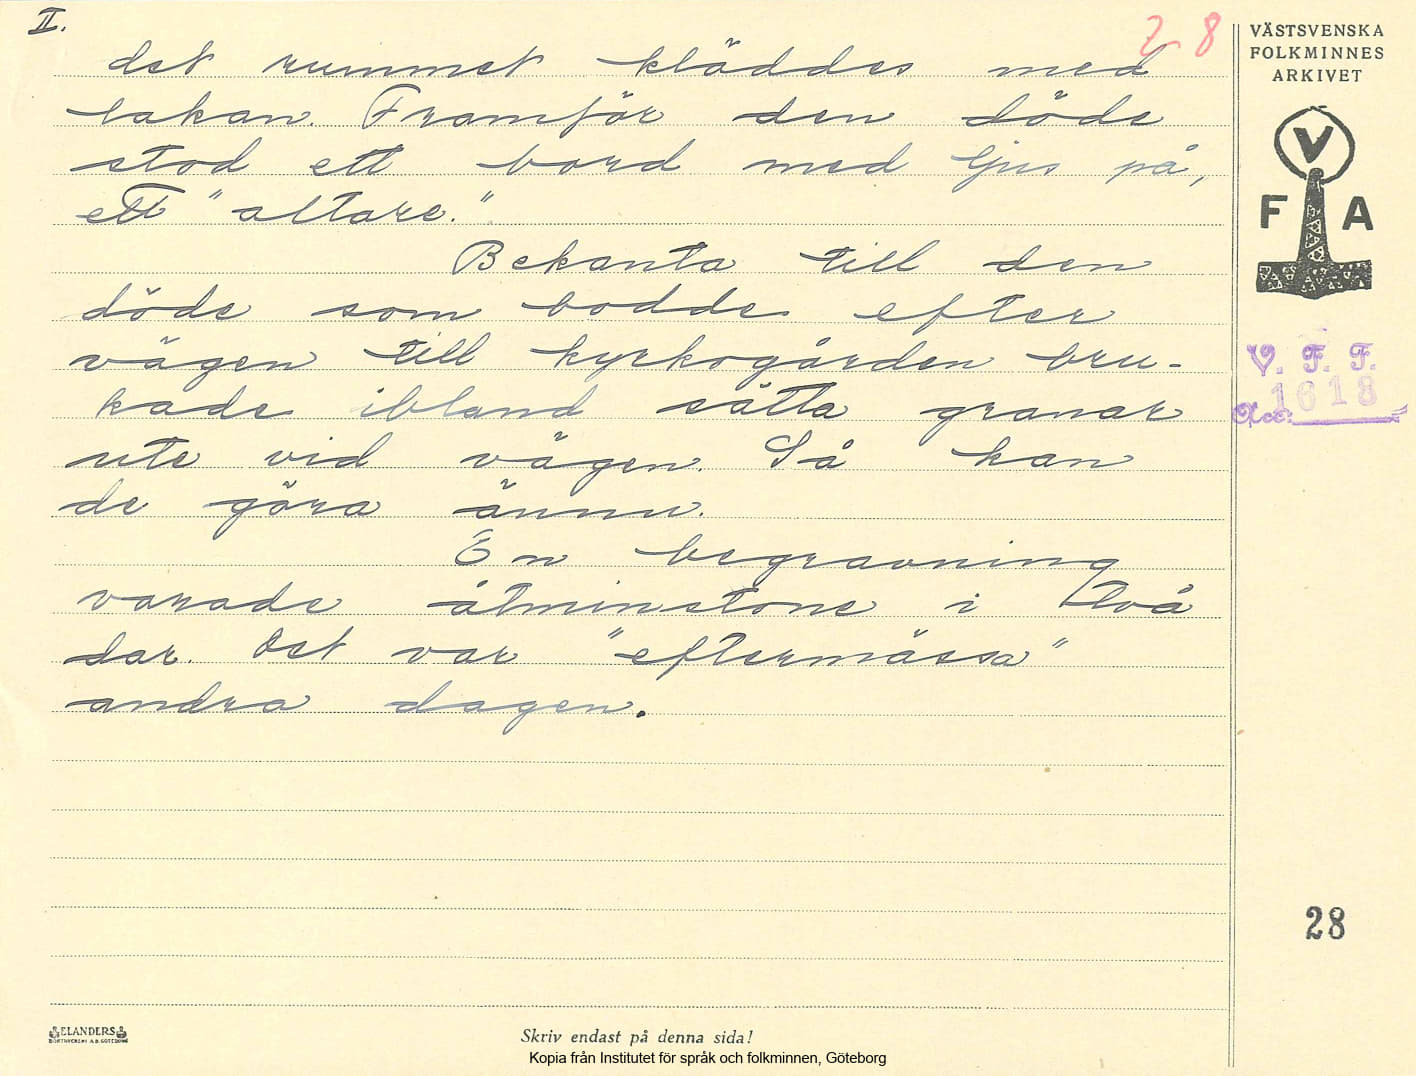 II.
28
det rummet kläddes med
lakan. Framför den döde
stod ett bord med ljus på,
ett "altare."
Bekanta till den
döde som bodde efter
vägen till kyrkogården bru-
kade ibland sätta granar
ute vid vägen. Så kan
de göra ännu.
En begravning
varade åtminstone i två
dar. Det var "eftermässa"
andra dagen.
VÄSTSVENSKA
FOLKMINNES
ARKIVET
V
F A
V. F. F.
Acc: 1618
28
ELANDERS
BOKTRYCKERI A.B. GÖTEBORG
Skriv endast på denna sida!
Kopia från Institutet för språk och folkminnen, Göteborg